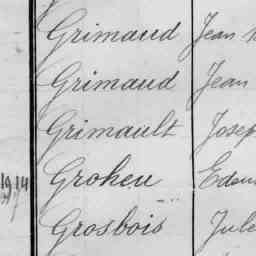 Grimaud Jean
Grimaud Jean
Grimault Josep
Groheu Edou
Grosbois Jule